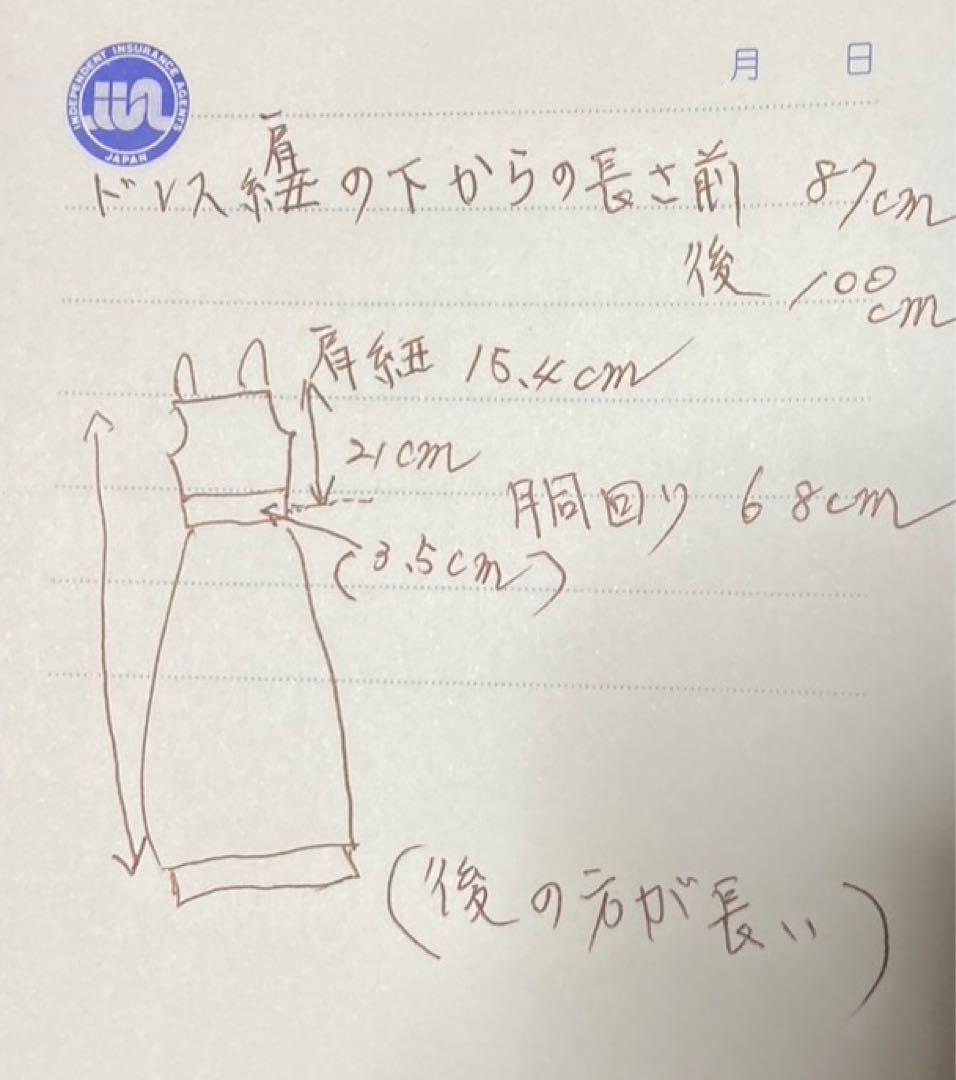 INDEPENDENT INSURANCE AGENTS
iia
JAPAN
月 日
ドレス肩紐の下からの長さ前 87cm
後 100cm
肩紐 15.4cm
21cm
胴回り 68cm
(3.5cm)
(後の方が長い)